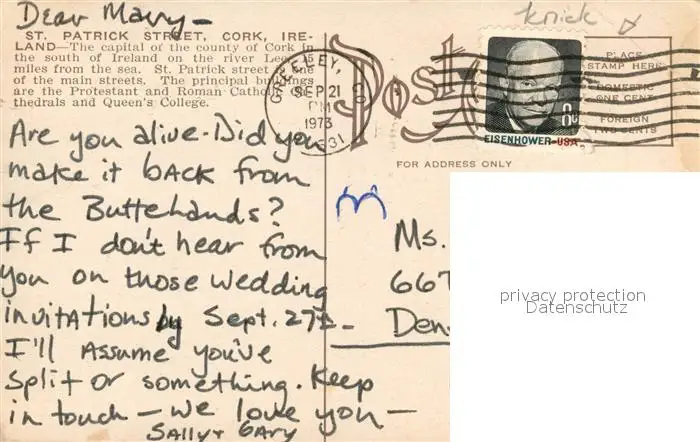 Dear Mary-
ST. PATRICK STREET, CORK, IRE-
LAND—The capital of the county of Cork in
the south of Ireland on the river Lee, 15
miles from the sea. St. Patrick street one
of the main streets. The principal buildings
are the Protestant and Roman Catholic
thedrals and Queen's College.
Are you alive-Did you
make it back from
the Buttelands?
If I don't hear from
you on those wedding
invitations by Sept. 27th-
I'll Assume you've
split or something. Keep
in touch - we love you -
Sally + Gary
knick
Post
GREELEY, CO
SEP 21
PM
1973
PLACE
STAMP HERE
DOMESTIC
ONE CENT
FOREIGN
TWO CENTS
8c
EISENHOWER·USA
FOR ADDRESS ONLY
Ms.
667
Den
privacy protection
Datenschutz